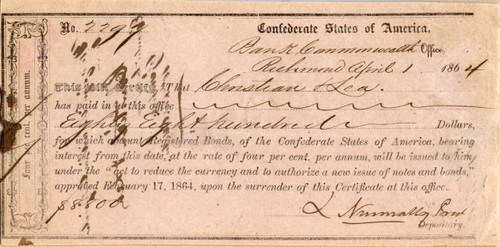 No. 2299
Confederate States of America.
Bank Commonwealth Office,
Richmond April 1 1864
This will Certify, That Christian & Lea
has paid in at this office
Eighty Eight hundred Dollars,
for which amount Registered Bonds, of the Confederate States of America, bearing
interest from this date, at the rate of four per cent. per annum, will be issued to him
under the "act to reduce the currency and to authorize a new issue of notes and bonds,"
approved February 17, 1864, upon the surrender of this Certificate at this office.
$8800
Depositary.
Four per cent. per annum.